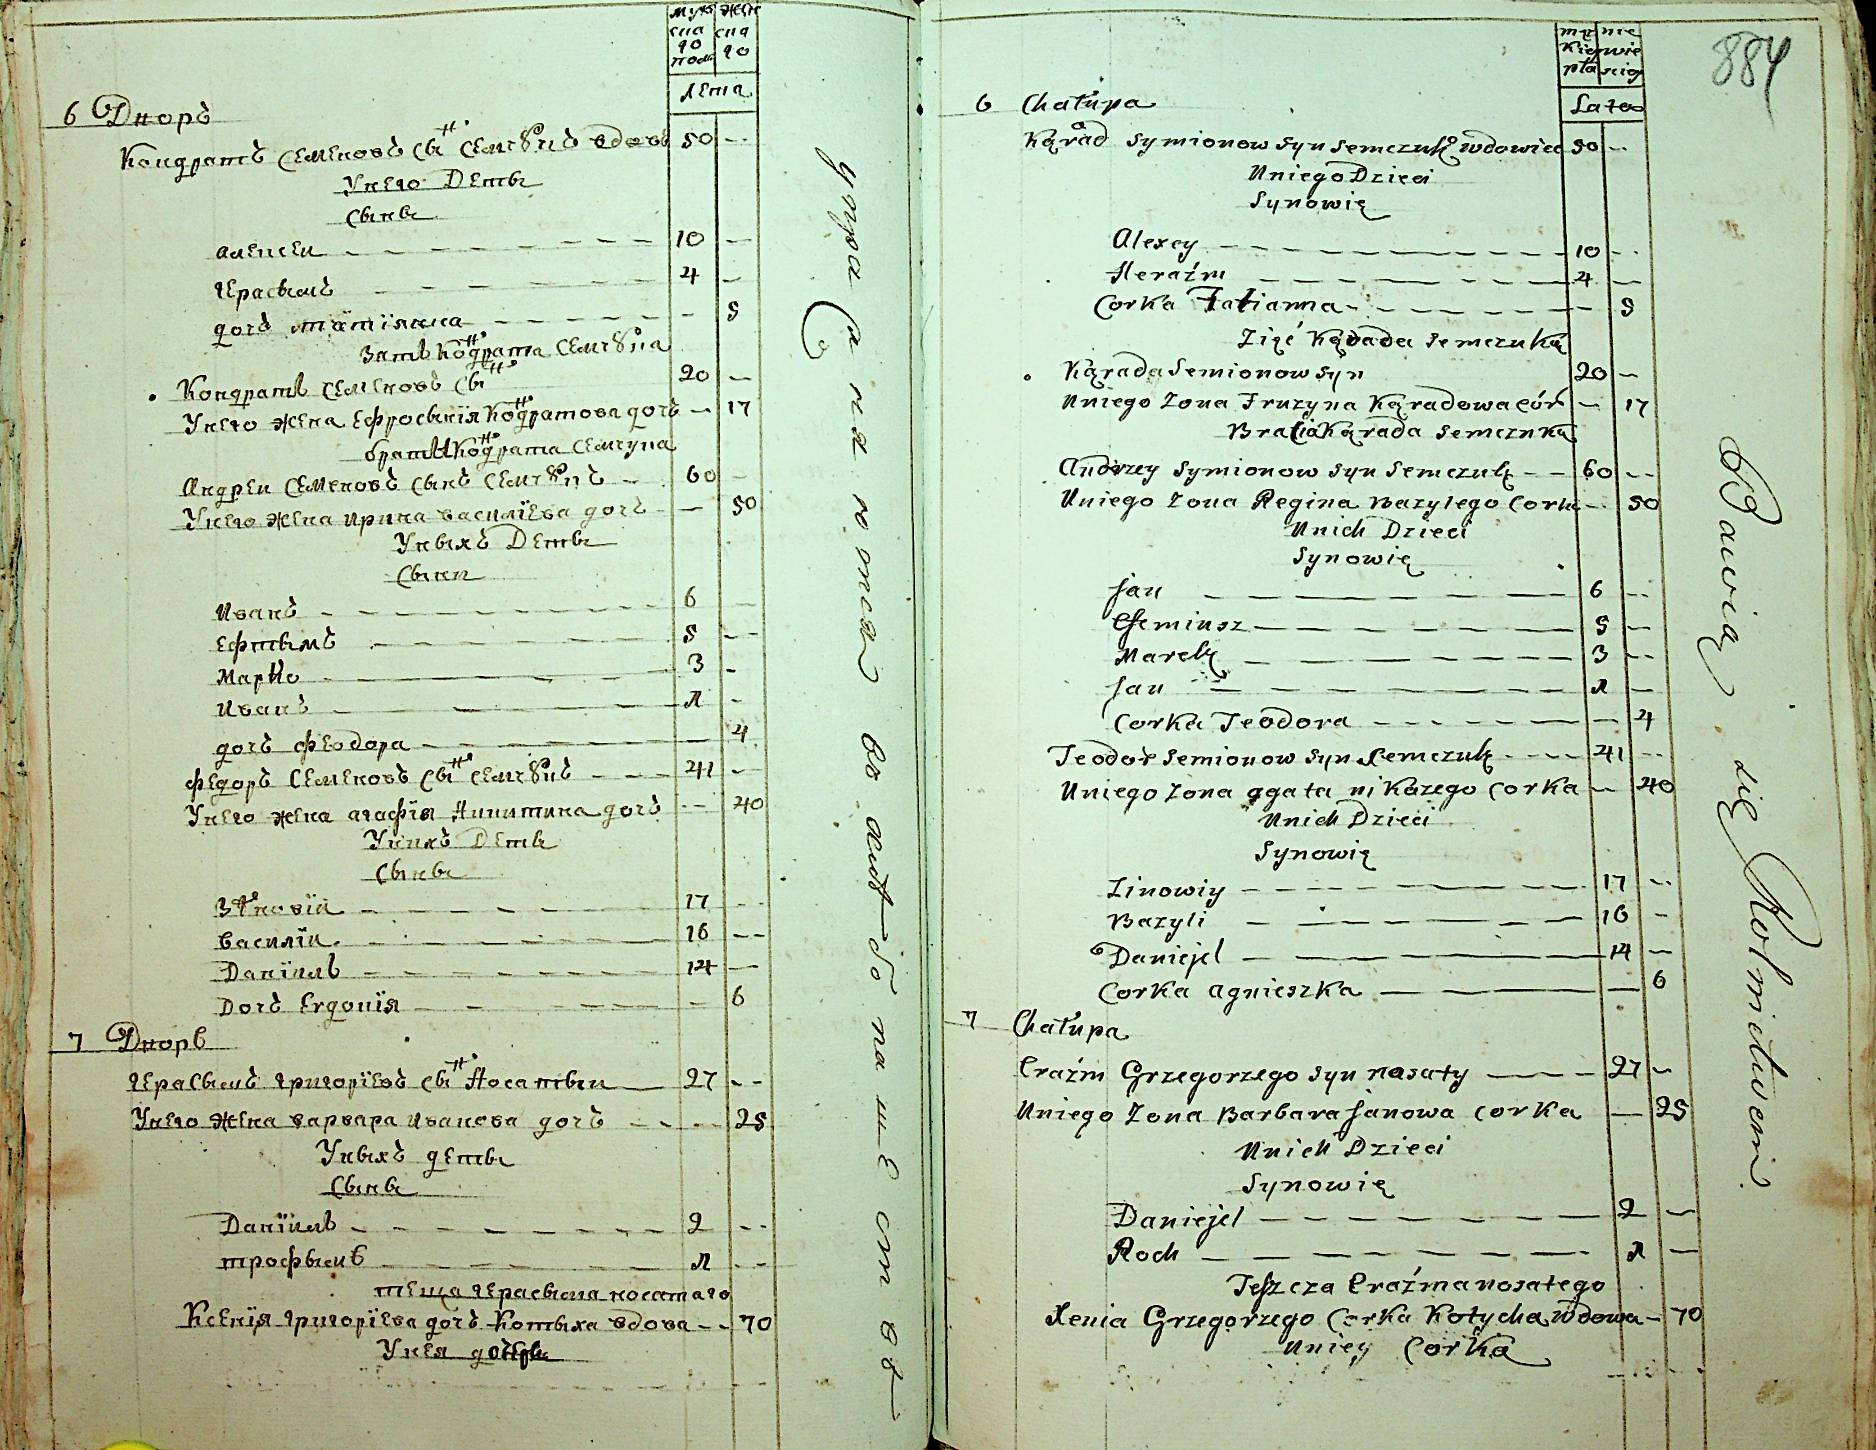 мужеска го полу
женска го
лета
6 Дворъ
Кондратъ Семеновъ сынъ Семчукъ вдовъ 50 --
У него Дети
Сыны
Алексеи 10 --
Герасымъ 4 --
дочъ татїянна -- 5
Зять Кондрата Семчука
Кондратъ Семеновъ сынъ 20 --
У него жена Ефросынїя Кондратова дочь -- 17
братъ Кондрата Семчука
Андреи Семеновъ сынъ Семчукъ 60 --
У него жена Ирина василїева дочъ -- 50
У ныхъ Дети
Сыни
Иванъ 6 --
Ефтымъ 5 --
Марко 3 --
Иванъ 1 --
дочъ феодора -- 4
федоръ Семеновъ сынъ Семчукъ 41 --
У него жена агафїя Никитина дочъ -- 40
У нихъ Дети
Сыны
Зѣновїи 17 --
василїи 16 --
Данїилъ 14 --
Дочъ Евдокїя -- 6
7 Дворъ
Герасымъ Григорїевъ сынъ Носатыи 27 --
У него жена варвара Иванова дочъ -- 25
У ныхъ дети
Сыны
Данїилъ 2 --
трофымъ 1 --
теща Герасыма носатаго
Ксенїя Григорїева дочъ Котыха вдова -- 70
У нея дочери
упражняются во хлѣбопашествѣ
884
męz kiey płci
nie wie sciey
Lata
6 Chałupa
Kąrad Symionow Syn Semczuk wdowiec 50 --
U niego Dzieci
Synowię
Alexey 10 --
Heraźm 4 --
Corka Tatianna -- 5
Zięć Kąrada Semczuka
Kąrada Semionow Syn 20 --
U niego Zona Fruzyna Kąradowa cór -- 17
Bracia Kąrada Semczuka
Andrzey Symionow Syn Semczuk 60 --
U niego Zona Regina Bazylego Corka -- 50
U nich Dzieci
Synowię
Jan 6 --
Efeminsz 5 --
Marek 3 --
Jan 1 --
Corka Teodora -- 4
Teodor Semionow Syn Semczuk 41 --
U niego Zona agata nikazego Corka -- 40
U nich Dzieci
Synowię
Zinowiy 17 --
Bazyli 16 --
Daniejel 14 --
Corka agnieszka -- 6
7 Chałupa
Eraźm Grzegorzego Syn nosaty 27 --
U niego Zona Barbara Janowa Corka -- 25
U nich Dzieci
Synowię
Daniejel 2 --
Roch 1 --
Teszcza Eraźma nosatego
Xenia Grzegorzego Corka Kotycha Wdowa -- 70
U niey Corka
Bawią się Rolnictwem